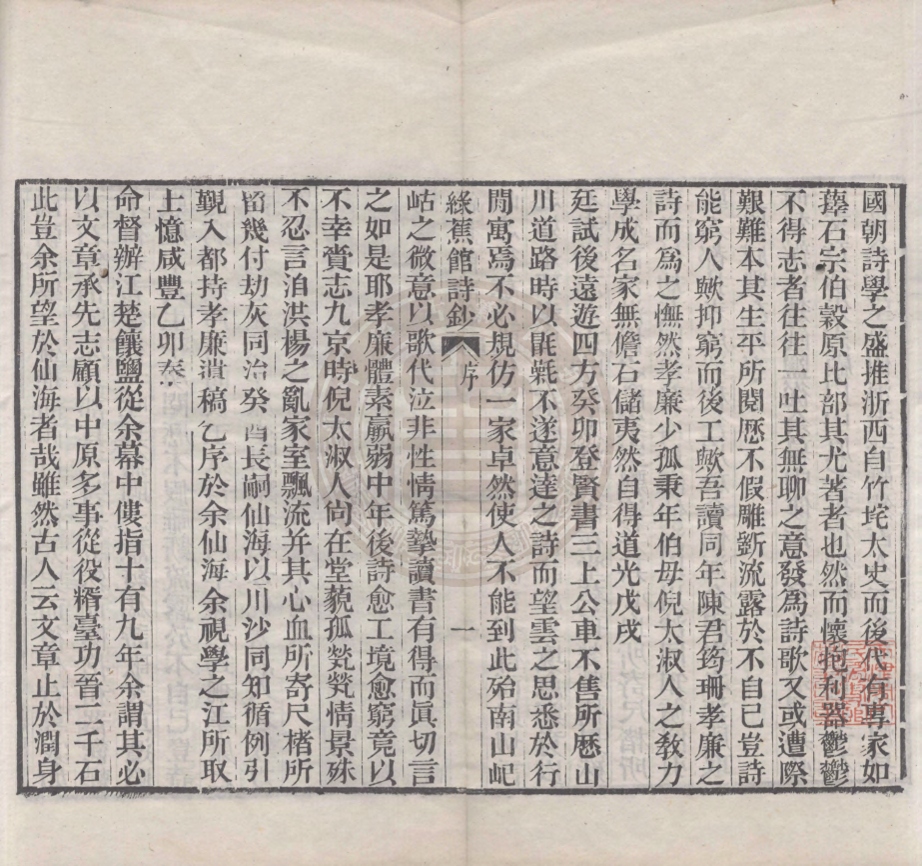 國朝詩學之盛推浙西自竹垞太史而後代有專家如
蘀石宗伯穀原比部其尤著者也然而懷抱利器鬱鬱
不得志者往往一吐其無聊之意發爲詩歌又或遭際
艱難本其生平所閱歷不假雕斵流露於不自已豈詩
能窮人歟抑窮而後工歟吾讀同年陳君筠珊孝廉之
詩而爲之憮然孝廉少孤秉年伯母倪太淑人之敎力
學成名家無儋石儲夷然自得道光戊戌
廷試後遠遊四方癸卯登賢書三上公車不售所歷山
川道路時以骯髒不遂意達之詩而望雲之思悉於行
間寓焉不必規仿一家卓然使人不能到此殆南山屺
綠蕉館詩鈔 序 一
岵之微意以歌代泣非性情篤摯讀書有得而眞切言
之如是耶孝廉體素羸弱中年後詩愈工境愈窮竟以
不幸賫志九京時倪太淑人尙在堂藐孤煢煢情景殊
不忍言洎洪楊之亂家室飄流幷其心血所寄尺楮所
留幾付劫灰同治癸酉長嗣仙海以川沙同知循例引
覲入都持孝廉遺稿乞序於余仙海余視學之江所取
士憶咸豐乙卯奉
命督辦江楚饟鹽從余幕中僂指十有九年余謂其必
以文章承先志顧以中原多事從役糈臺功晉二千石
此豈余所望於仙海者哉雖然古人云文章止於潤身